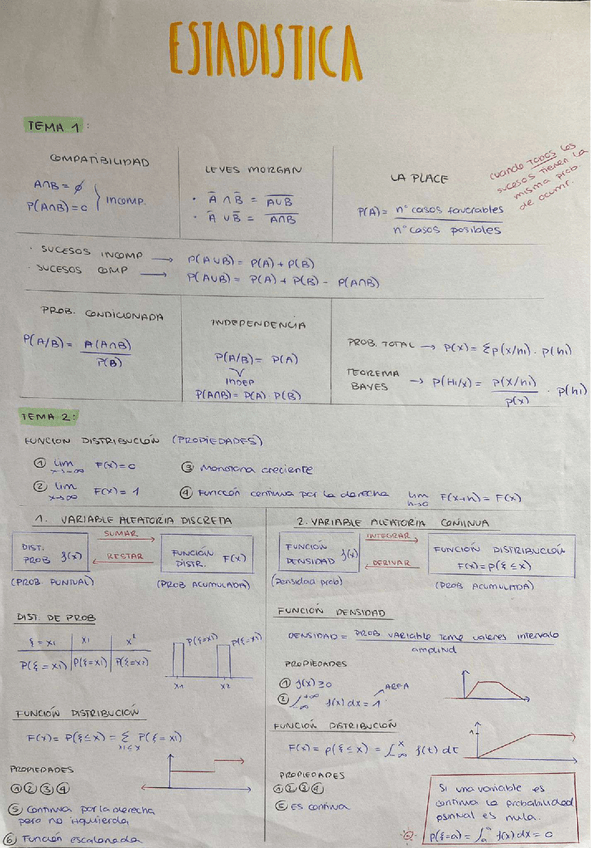 ESTADISTICA
TEMA 1:
COMPATIBILIDAD
A∩B = ∅
P(A∩B) = 0 } INCOMP.
LEYES MORGAN
· A̅ ∩ B̅ = \overline{A∪B}
· A̅ ∪ B̅ = \overline{A∩B}
LA PLACE
P(A) = nº casos favorables
nº casos posibles
cuando TODOS los
sucesos tienen la
misma prob.
de ocurrir.
· SUCESOS INCOMP → P(A∪B) = P(A) + P(B)
· SUCESOS COMP → P(A∪B) = P(A) + P(B) - P(A∩B)
PROB. CONDICIONADA
P(A/B) = A(A∩B)
P(B)
INDEPENDENCIA
P(A/B) = P(A)
INDEP
P(A∩B) = P(A) P(B)
PROB. TOTAL → P(x) = Σp(x/hi) · p(hi)
TEOREMA
BAYES → P(Hi/x) = P(x/hi) · p(hi)
p(x)
TEMA 2:
FUNCION DISTRIBUCIÓN (PROPIEDADES)
① lim F(x) = 0
x→-∞
② lim F(x) = 1
x→∞
③ Monotona creciente
④ Función continua por la derecha lim F(x+h) = F(x)
h→0
1. VARIABLE ALEATORIA DISCRETA
DIST.
PROB f(x)
SUMAR
RESTAR
FUNCIÓN
DISTR. F(x)
(PROB PUNTUAL)
(PROB ACUMULADA)
DIST. DE PROB
ξ = xi x1 x²
P(ξ = xi) P(ξ=xi) P(ξ=xi)
P(ξ=xi) P(ξ=xi)
x1 x2
FUNCIÓN DISTRIBUCIÓN
F(x) = P(ξ≤x) = Σ P(ξ = xi)
xi≤x
PROPIEDADES
① ② ③ ④
⑤ Continua por la derecha
pero no izquierda
⑥ Función escalonada
2. VARIABLE ALEATORIA CONTINUA
FUNCIÓN
DENSIDAD f(x)
INTEGRAR
DERIVAR
FUNCIÓN DISTRIBUCIÓN
F(x) = P(ξ ≤ x)
(Densidad prob)
(PROB ACUMULADA)
FUNCIÓN DENSIDAD
DENSIDAD = PROB VARIABLE Tome valores intervalo
amplitud
PROPIEDADES
① f(x) ≥ 0
② ∫_{-∞}^{+∞} f(x) dx = 1
AREA
FUNCIÓN DISTRIBUCIÓN
F(x) = P(ξ ≤ x) = ∫_{-∞}^{x} f(t) dt
1
PROPIEDADES
① ② ③ ④
⑤ Es continua
Si una variable es
continua la probabilidad
puntual es nula.
P(ξ=a) = ∫_a^a f(x) dx = 0